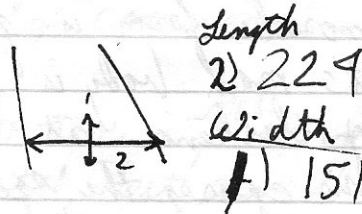 Length
2) 224
Width
1) 151
2